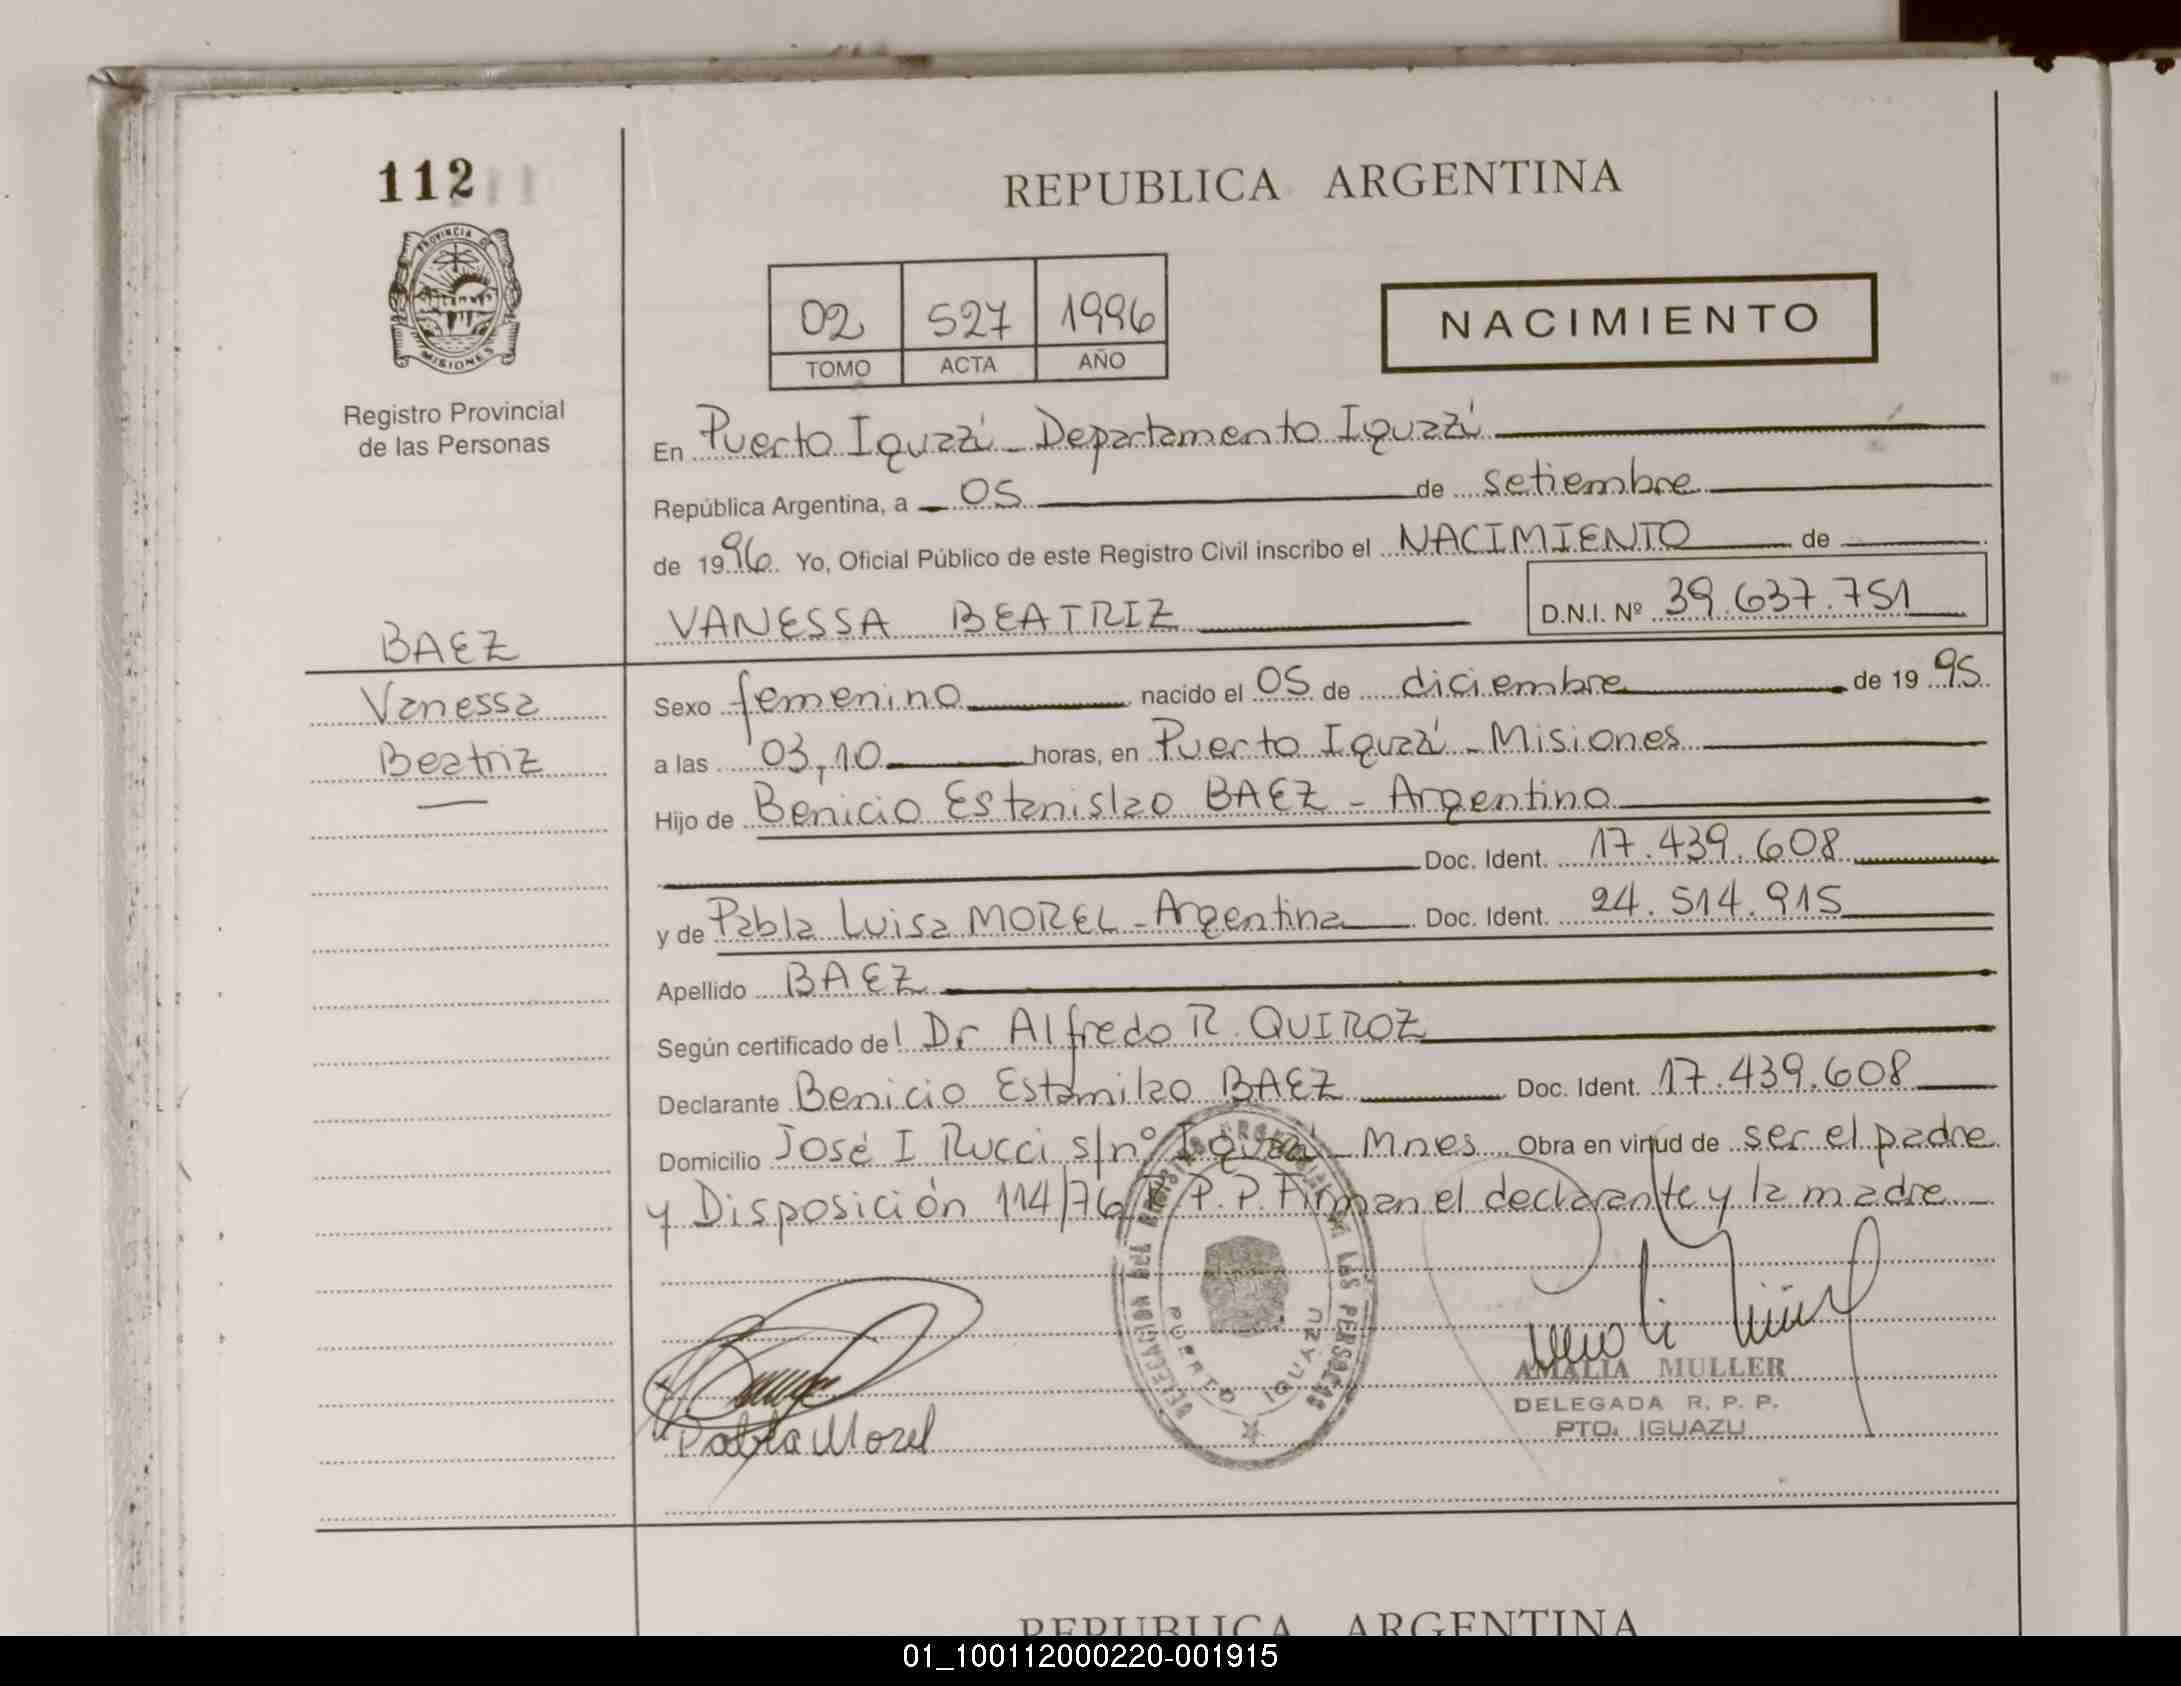 112
REPUBLICA ARGENTINA
PROVINCIA DE
MISIONES
Registro Provincial
de las Personas
02 527 1996
TOMO ACTA AÑO
NACIMIENTO
En Puerto Iguazú - Departamento Iguazú
República Argentina, a 05 de setiembre
de 1996. Yo, Oficial Público de este Registro Civil inscribo el NACIMIENTO de
VANESSA BEATRIZ D.N.I. Nº 39.637.751
BAEZ
Vanessa
Beatriz
Sexo femenino nacido el 05 de diciembre de 1995
a las 03,10 horas, en Puerto Iguazú - Misiones
Hijo de Benicio Estanislao BAEZ - Argentino
Doc. Ident. 17.439.608
y de Pabla Luisa MOREL - Argentina Doc. Ident. 24.514.915
Apellido BAEZ
Según certificado del Dr Alfredo R. QUIROZ
Declarante Benicio Estanilao BAEZ Doc. Ident. 17.439.608
Domicilio José I Rucci s/nº Iguazú - Mnes Obra en virtud de ser el padre
y Disposición 114/76 R.P.P. Firman el declarante y la madre
DELEGACION DEL REGISTRO PROVINCIAL DE LAS PERSONAS
PUERTO IGUAZU
Pabla Morel
AMALIA MULLER
DELEGADA R. P. P.
PTO. IGUAZU
REPUBLICA ARGENTINA
01_100112000220-001915